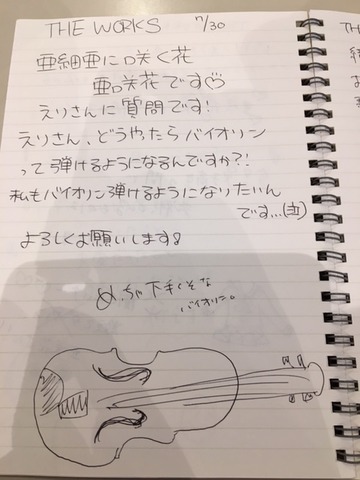 THE WORKS 7/30
亜細亜に咲く花
亜咲花です♡
えりさんに質問です!
えりさん、どうやったらバイオリン
って弾けるようになるんですか?!
私もバイオリン弾けるようになりたいん
です...(泣)
よろしくお願いします♪
めっちゃ下手くそな
バイオリン。